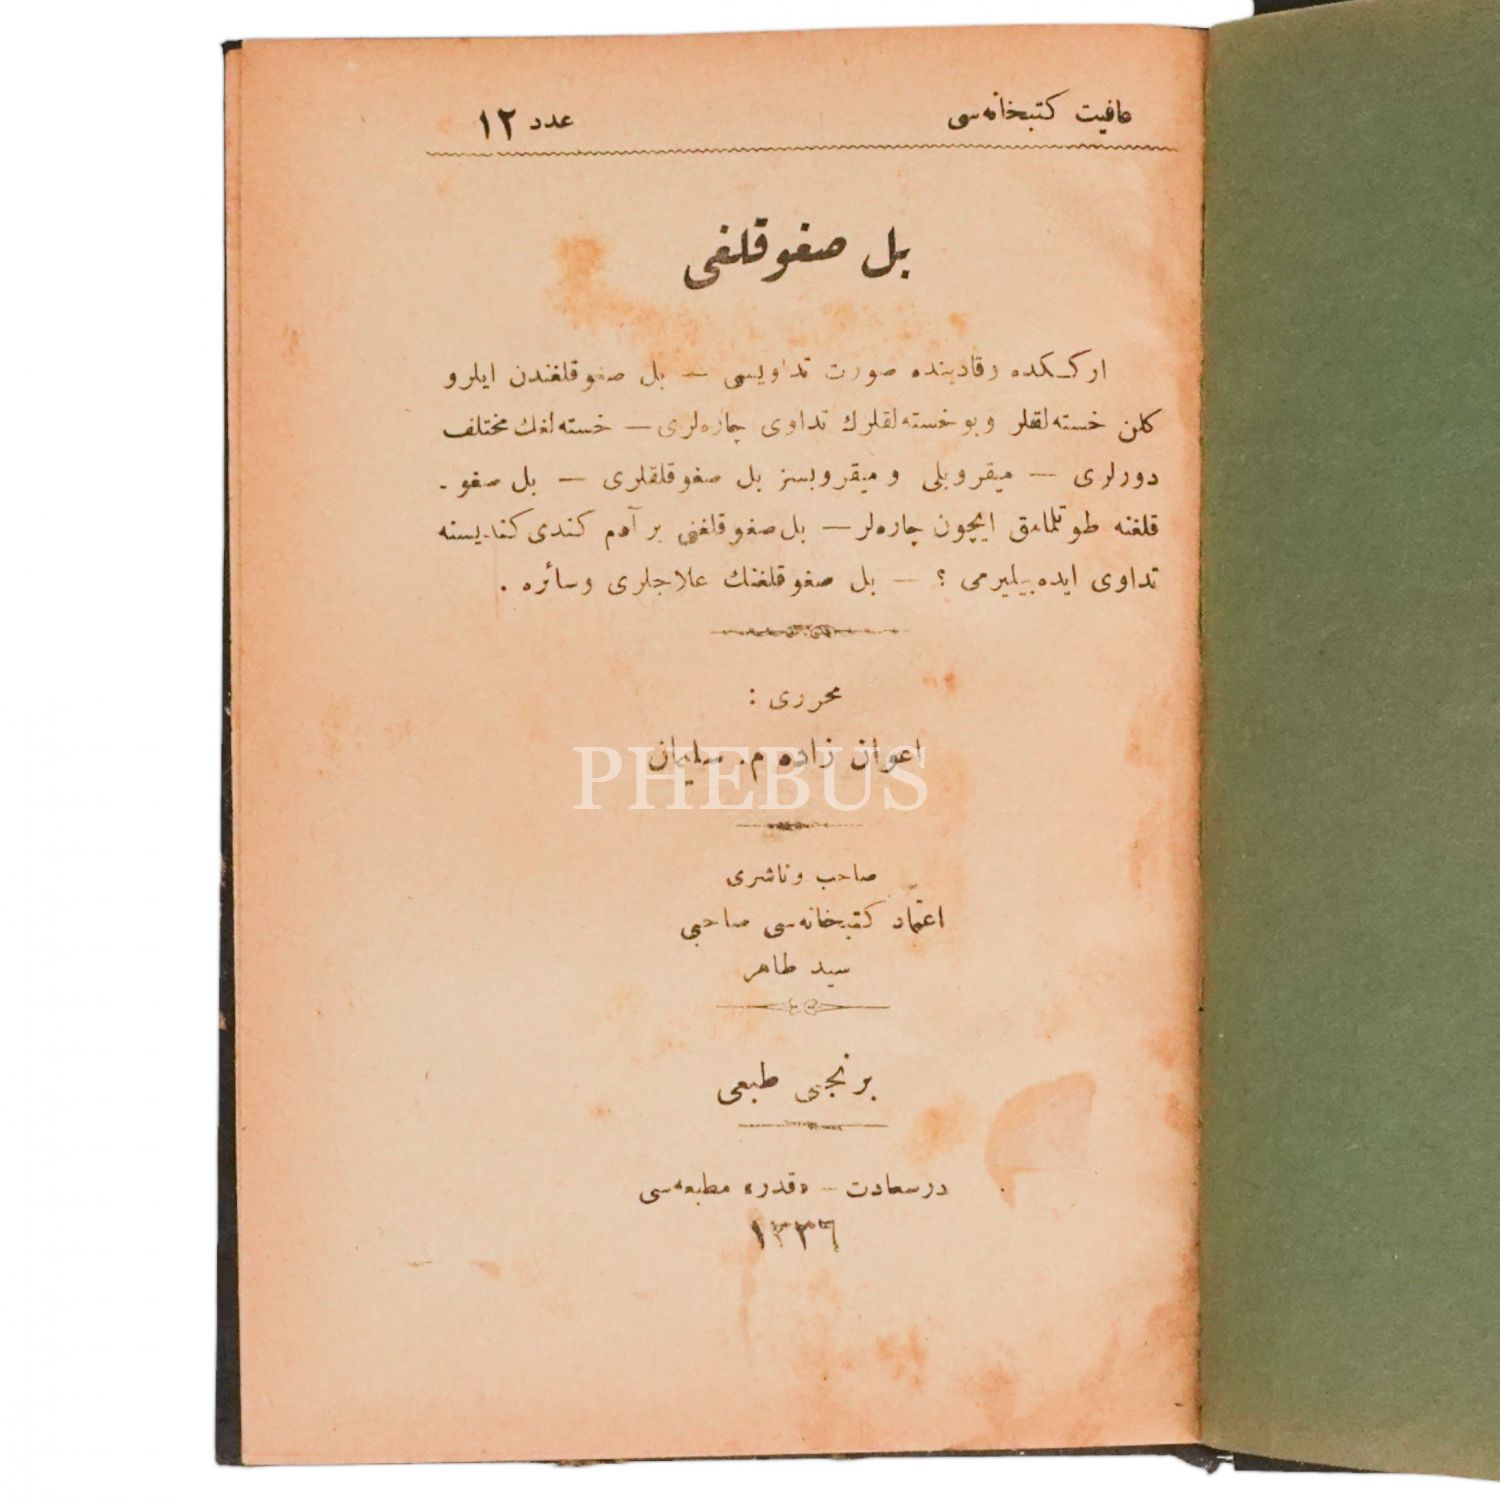 عافیت كتبخانه‌سی
عدد ١٢
بل صغوقلغی
اركـكده وقادینده صورت تداویسی — بل صغوقلغندن ایلرو
كلن خسته‌لقلر وبو خسته‌لقلرك تداوی چاره‌لری — خسته‌لغك مختلف
دورلری — میقروبلی و میقروبسز بل صغوقلقلری — بل صغو-
قلغنه طوتلمامق ایچون چاره‌لر — بل صغوقلغنی بر آدم كندی كندیسنه
تداوی ایده بیلیرمی ؟ — بل صغوقلغنك علاجلری وسائره .
محرری :
اعوان زاده م. سلیمان
PHEBUS
صاحب وناشری
اعتماد كتبخانه‌سی صاحبی
سید طاهر
برنجی طبعی
درسعادت — «قدر» مطبعه‌سی
١٣٣٦